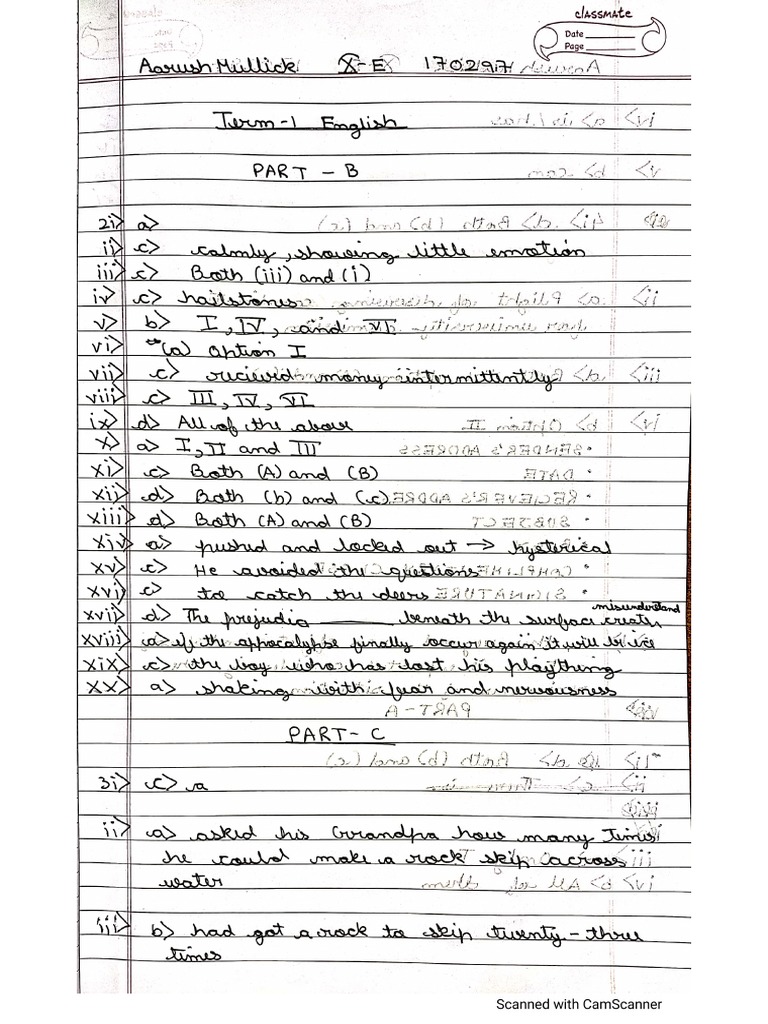 classmate
Date
Page
Aarush Mullick X-E 170297
Term-1 English
PART - B
2i> a>
ii> c> calmly, showing little emotion
iii> c> Both (iii) and (i)
iv> c> hailstones
v> b> I, IV, and VI
vi> (a) Option I
vii> c> recieved money intermittently
viii> c> III, IV, VI
ix> d> All of the above
x> a> I, II and III
xi> c> Both (A) and (B)
xii> d> Both (b) and (c)
xiii> d> Both (A) and (B)
xiv> a> pushed and locked out → hysterical
xv> c> He avoided the questions
xvi> c> to catch the deers
xvii> d> The prejudia ______ beneath the surface creates misunderstand
xviii> a> if the appocalypse finally occur again it will be ice
xix> c> the boy who has lost his plaything
xx> a> shaking with fear and nervousness
PART - C
3i> c> a
ii> a> asked his Grandpa how many Times
he could make a rock skip across
water
iii> b> had got a rock to skip twenty-three
times
Scanned with CamScanner